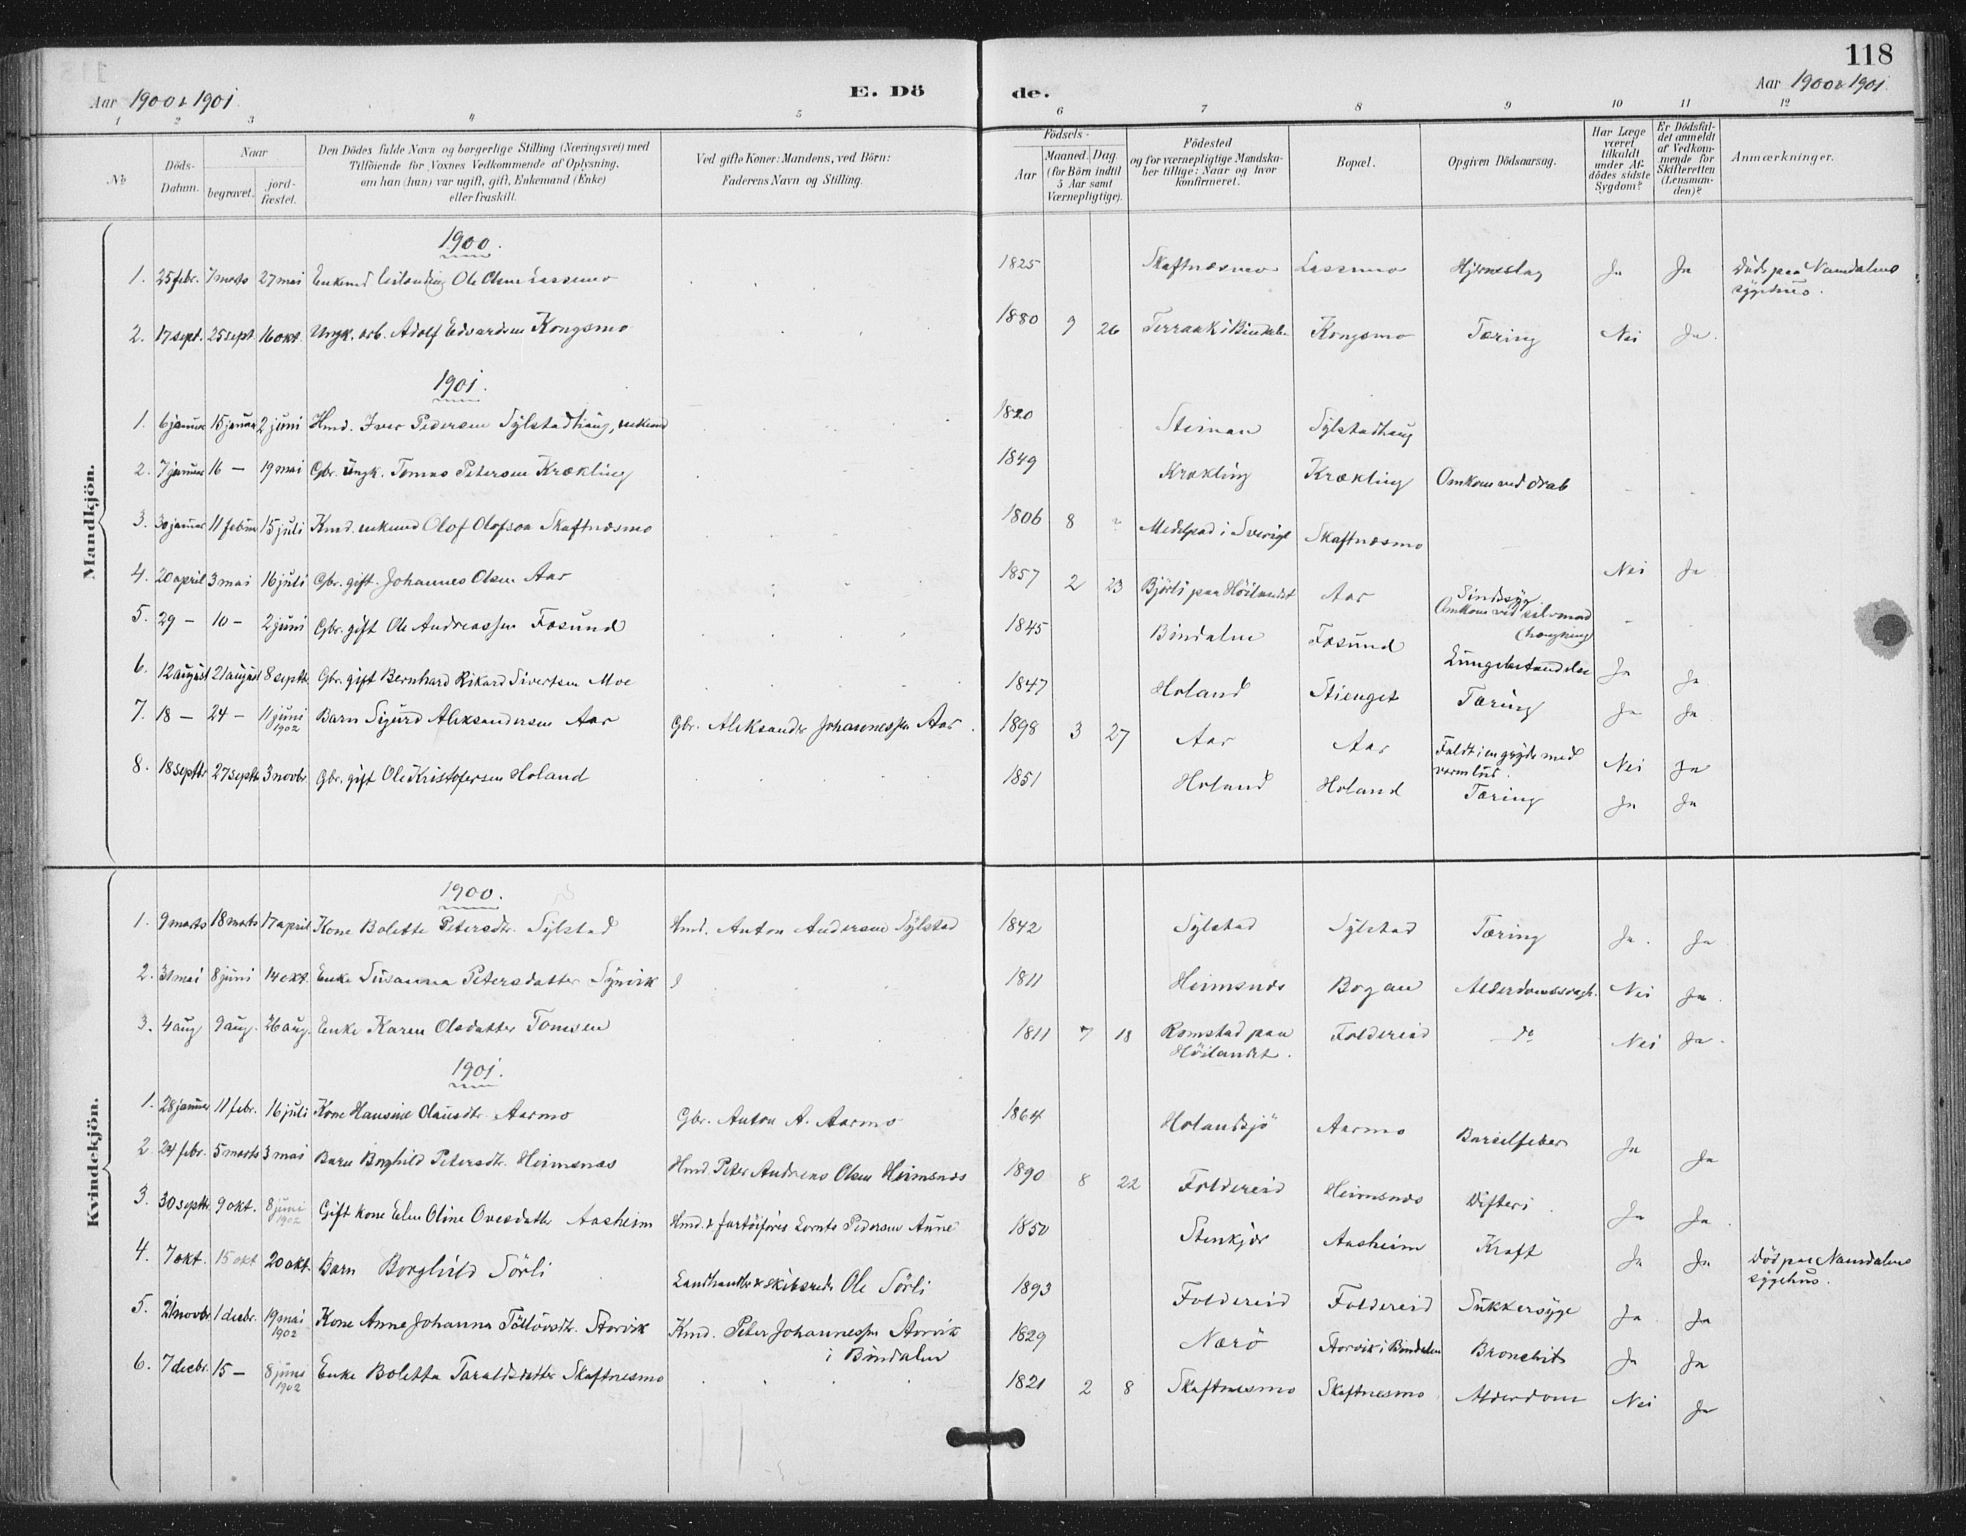 118
Aar 1900 & 1901
E. Dö
de.
Aar 1900 & 1901.
1 2 3 4 5 6 7 8 9 10 11 12
No
Döds-Datum.
Naar
begravet.
jord-fæstet.
Den Dödes fulde Navn og borgerlige Stilling (Næringsvei) med
Tilföiende for Voxnes Vedkommende af Oplysning,
om han (hun) var ugift, gift, Enkemand (Enke)
eller fraskilt.
Ved gifte Koner: Mandens, ved Börn:
Faderens Navn og Stilling.
Födsels-
Aar
Maaned. Dag.
(for Börn indtil
5 Aar samt
Værnepligtige).
Födested
og for værnepligtige Mandska-
ber tillige: Naar og hvor
konfirmeret.
Bopæl.
Opgiven Dödsaarsag.
Har Læge
været
tilkaldt
under Af-
dödes sidste
Sygdom?
Er Dödsfal-
det anmeldt
af Vedkom-
mende for
Skifteretten
(Lensman-
den)?
Anmærkninger.
Mandkjön.
1900.
1. 25 febr. 7 marts 27 mai Enkemd Ole Olsen Lassemo 1825 Skaftnæsmo Lassemo Hjerneslag Ja Ja Död paa Namdalens
sygehus.
2. 17 sept. 25 sept 16 okt. Ungk. arb. Adolf Edvardsen Kongsmo 1880 9 26 Terraak i Bindalen Kongsmo Tæring Nei Ja.
1901.
1. 6 januar 15 januar 2 juni Hmd. Iver Pedersen Sylstadhaug, enkemd 1820 Steinan Sylstadhaug
2. 7 januar 16 — 19 mai Gbr. ungk. Tomas Petersen Krækling 1849 Krækling Krækling Omkom ved drab
3. 30 januar 11 februar 15 juli Kmd. enkemd Olof Olofson Skaftnæsmo 1806 8 Medelpad i Sverige Skaftnæsmo
4. 20 april 3 mai 16 juli Gbr. gift. Johannes Olsen Aar 1857 2 23 Björli paa Höilandet Aar Sindssyg Nei Ja
Omkom ved selvmord
(hængning)
5. 29 — 10 — 2 juni Gbr. gift Ole Andreassen Fosund 1845 Bindalen Fosund
6. 12 august 21 august 8 septbr Gbr. gift Bernhard Rikard Sivertsen Moe 1847 Holand Stienget Lungebetændelse Ja Ja
Tæring
7. 18 — 24 — 11 juni
1902 Barn Sigurd Aleksandersen Aar Gbr. Aleksander Johannessen Aar. 1898 3 27 Aar Aar Faldt i en gryde med
varm lud. Ja Ja
8. 18 septbr 27 septbr 3 novbr. Gbr. gift Ole Kristofersen Holand 1851 Holand Holand Tæring Nei Ja
Ja Ja
Kvindekjön.
1900.
1. 9 marts 18 marts 17 april Kone Bolette Petersdtr. Sylstad Hmd. Anton Andersen Sylstad 1842 Sylstad Sylstad Tæring Ja. Ja
2. 31 mai 8 juni 14 okt. Enke Susanna Petersdatter Synvik 1811 Heimsnæs Bogan Nei Ja.
3. 4 aug 9 aug. 26 aug. Enke Karen Olsdatter Tomsen 1811 7 18 Romstad paa
Höilandet. Foldereid do Nei Ja.
1901.
1. 28 januar 11 febr. 16 juli Kone Hansine Olausdtr. Aarmo Gbr. Anton A. Aarmo 1864 Holandsjö Aarmo Barselfeber Ja Ja
2. 24 febr. 5 marts 3 mai Barn Borghild Petersdtr. Heimsnæs Hmd Peter Andreas Olsen Heimsnæs 1890 8 22 Foldereid Heimsnæs Difteri. Ja Ja.
3. 30 septbr. 9 okt. 8 juni
1902 Gift kone Elen Oline Ovesdatter Aasheim Hmd. & fartöiförer Lornts Pedersen Aune 1850 Stenkjær Aasheim Kræft Ja Ja Död paa Namdalens
sygehus.
4. 7 okt. 15 okt 20 okt. Barn Borghild Sörli Landhandler & skibsreder Ole Sörli 1893 Foldereid Foldereid Sukkersyge Ja Ja
5. 21 novbr. 1 decbr. 19 mai
1902 Kone Anne Johanna Tollövsdtr. Storvik Kmd. Peter Johannessen Storvik
i Bindalen 1829 Nærö Storvik i Bindalen Bronchit Ja Ja
6. 7 decbr. 15 — 8 juni
1902 Enke Boletta Taraldsdatter Skaftnesmo 1821 2 8 Skaftnesmo Skaftnesmo Alderdom Nei Ja